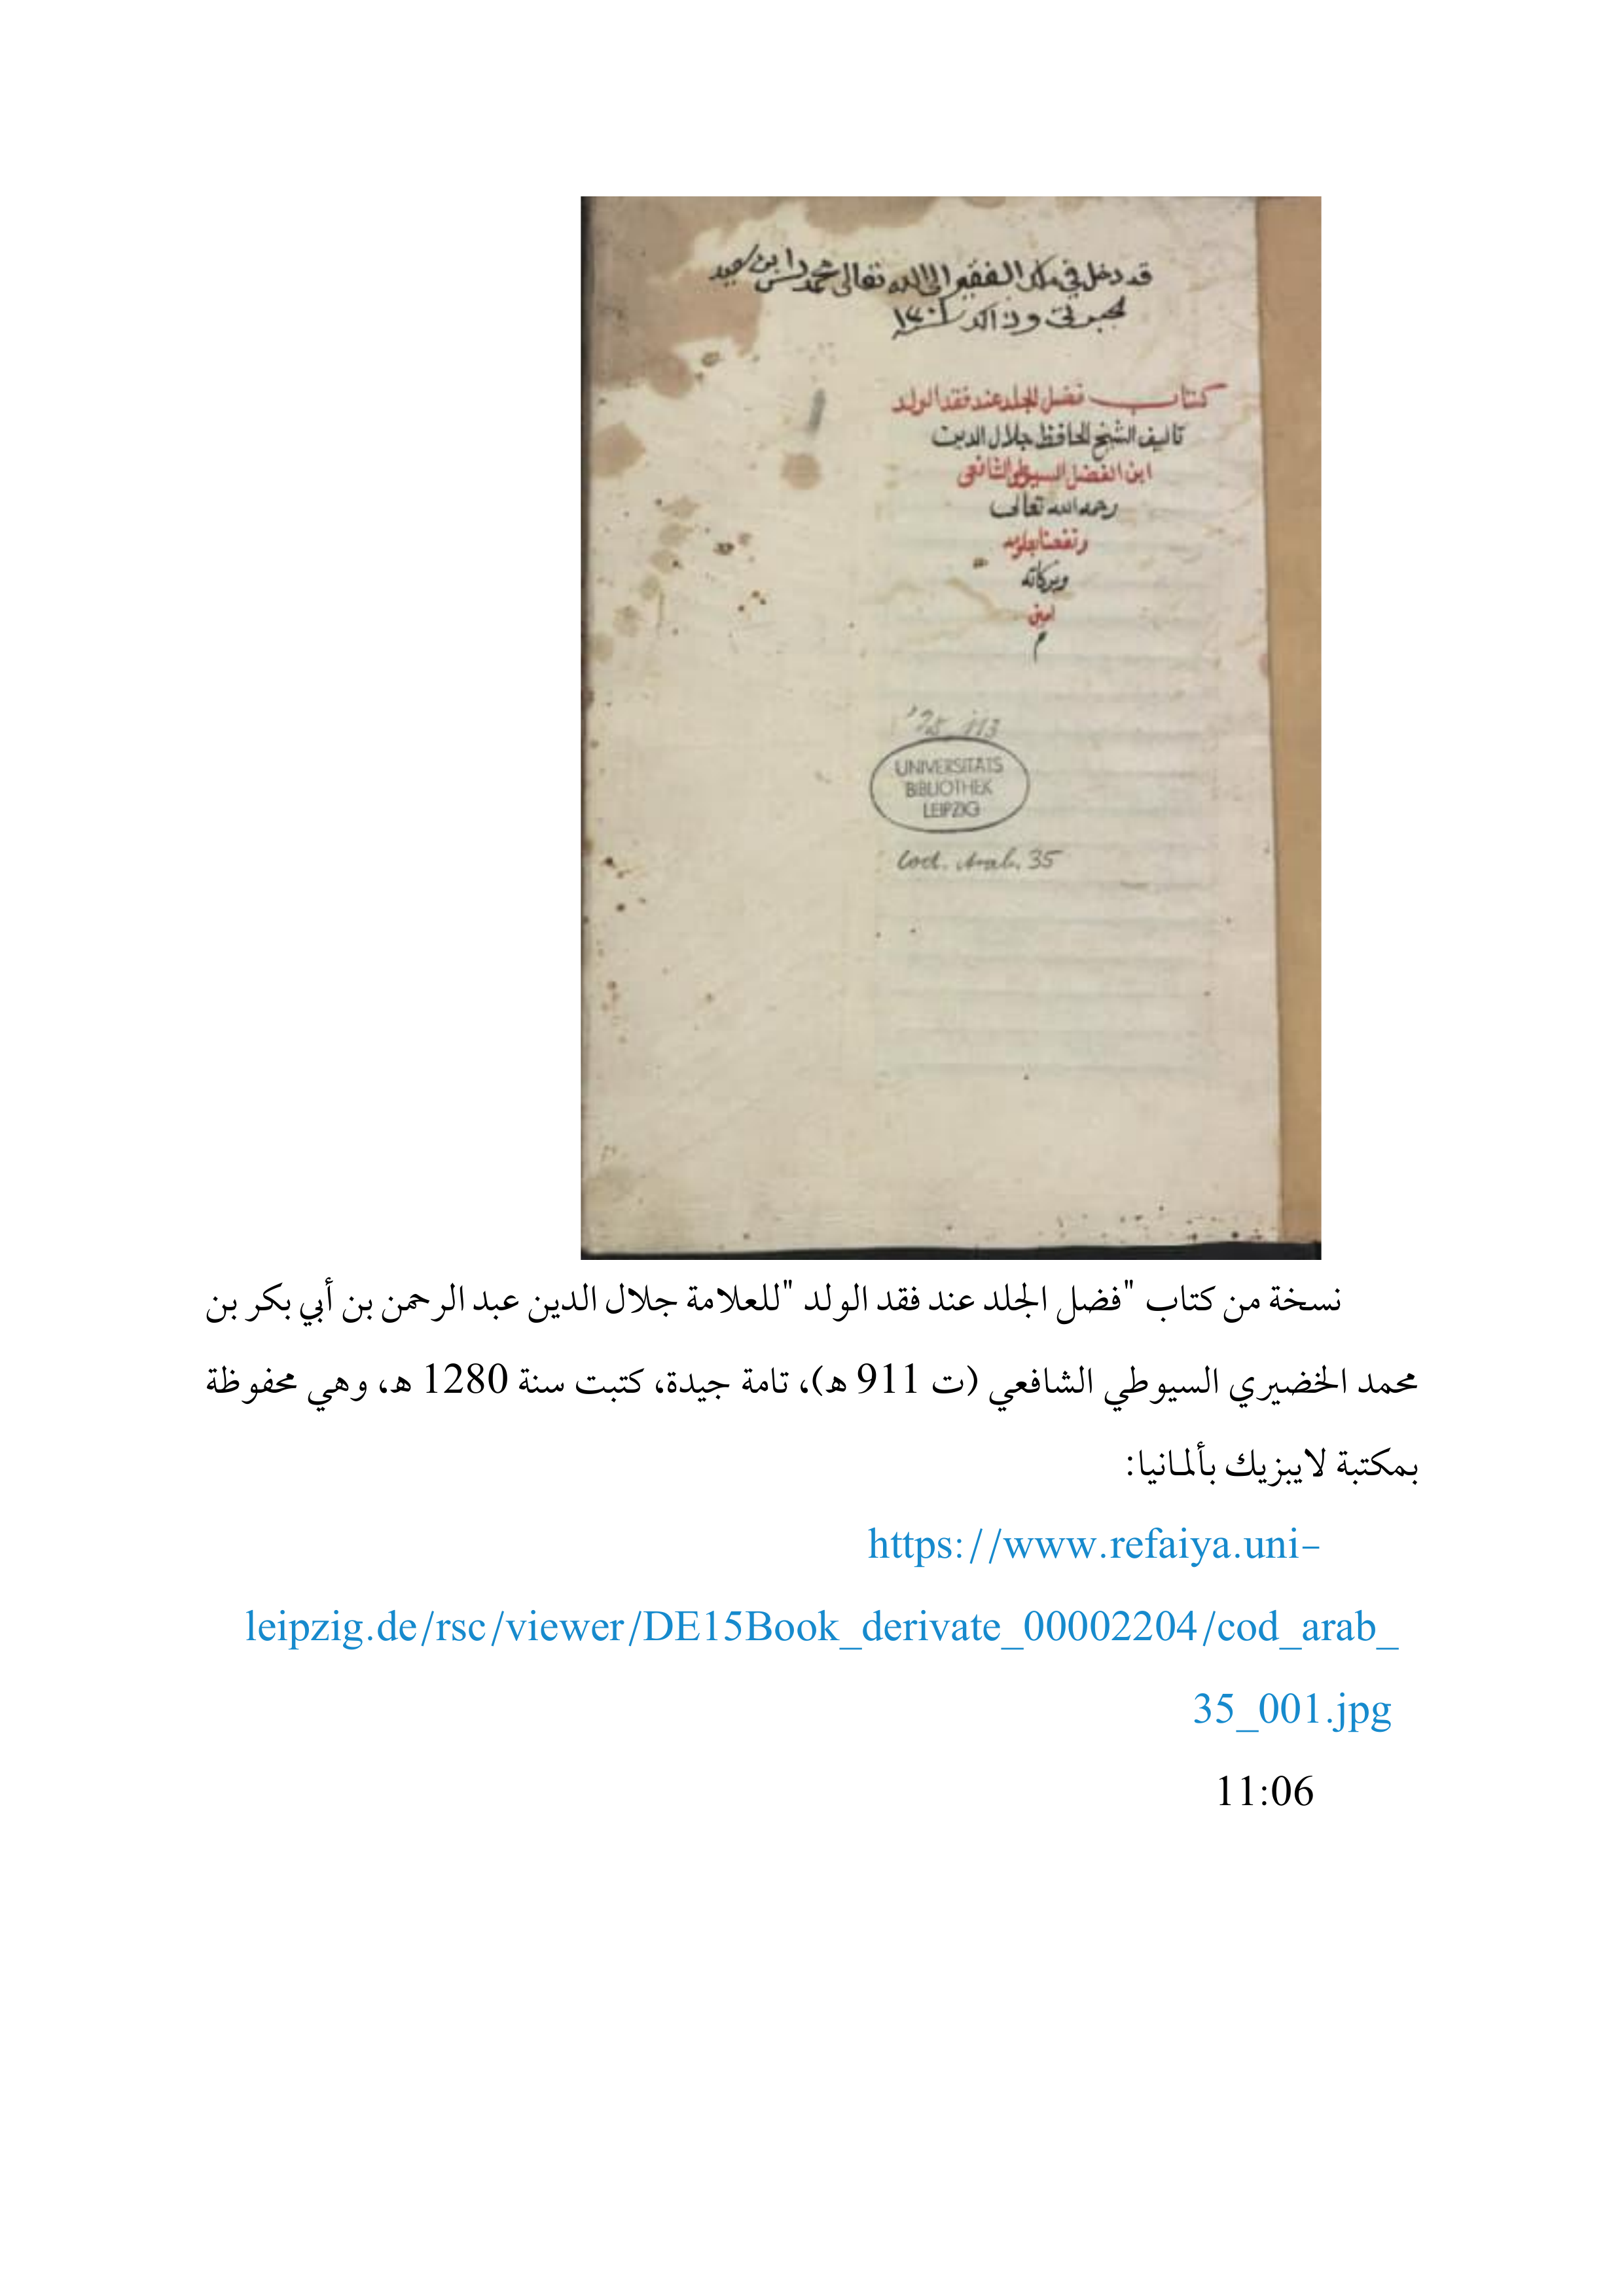 قد دخل في ملك الفقير الى الله تعالى محمد ابن
وذالك سنة
كتاب فضل الجلد عند فقد الولد
تاليف الشيخ الحافظ جلال الدين
ابن الفضل السيوطي الشافعي
رحمه الله تعالى
ونفعنا بعلومه
وبركاته
امين
م
UNIVERSITÄTS
BIBLIOTHEK
LEIPZIG
Cod. Arab. 35
نسخة من كتاب "فضل الجلد عند فقد الولد "للعلامة جلال الدين عبد الرحمن بن أبي بكر بن
محمد الخضيري السيوطي الشافعي (ت 911 هـ)، تامة جيدة، كتبت سنة 1280 هـ، وهي محفوظة
بمكتبة لايبزيك بألمانيا:
https://www.refaiya.uni-
leipzig.de/rsc/viewer/DE15Book_derivate_00002204/cod_arab_
35_001.jpg
11:06